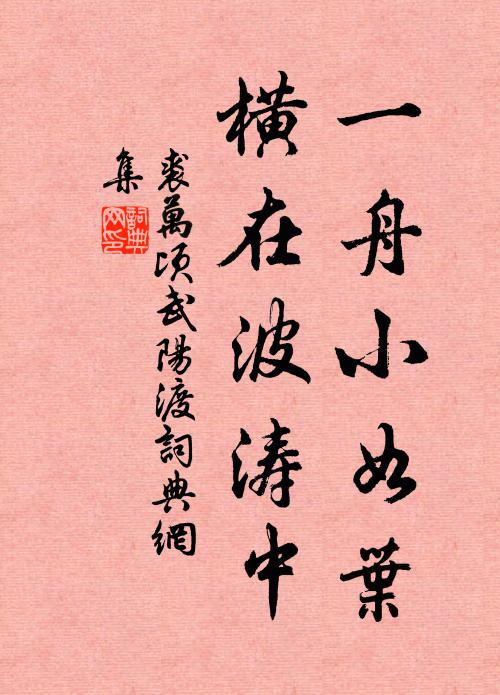 一舟小如葉
橫在波濤中
裘萬頃武陽渡詞典網
集
詞典
网印